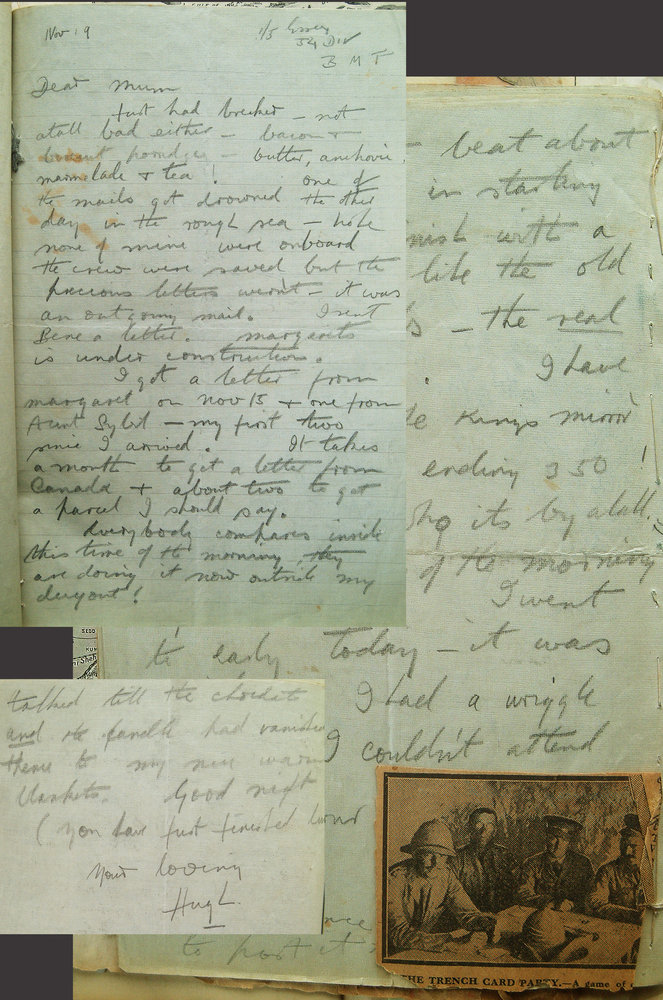 Nov 19
1/5 Essex
54 Div
B M T
Dear Mum
Just had brekker - not
atall bad either - bacon +
biscuit porridge - butter, anchovie,
marmelade + tea! one of
the mails got drowned the other
day in the rough sea - hope
none of mine were onboard
the crew were saved but the
precious letters weren't - it was
an outgoing mail. I sent
Bene a letter. margarets
is under construction.
I got a letter from
margaret on Nov 15 + one from
Aunt Sybil - my first two
since I arrived. It takes
a month to get a letter from
Canada + about two to get
a parcel I should say.
Everybody compares inside
this time of the morning they
are doing it now outside my
dugout!
- beat about
in starting
with a
like the old
- the real
I have
Kings mirror
ending 350!
its by atall.
of the morning
I went
to early today - it was
I had a wriggle
I couldn't attend
to post it
talked till the
and the candle had vanished
thence to my nice warm
blankets. Good night
(you have just finished
Your loving
Hugh
THE TRENCH CARD PARTY.—A game of